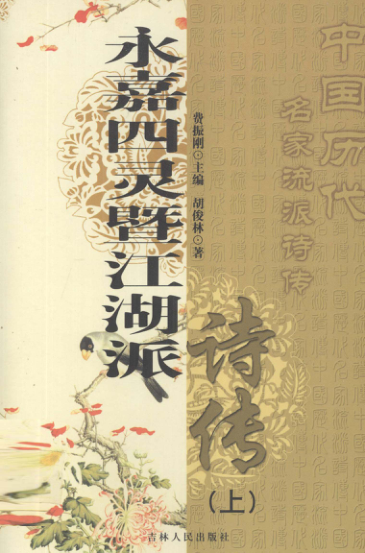 中国历代
名家流派诗传
永嘉四灵暨江湖派
诗传
（上）
费振刚○主编 胡俊林○著
吉林人民出版社